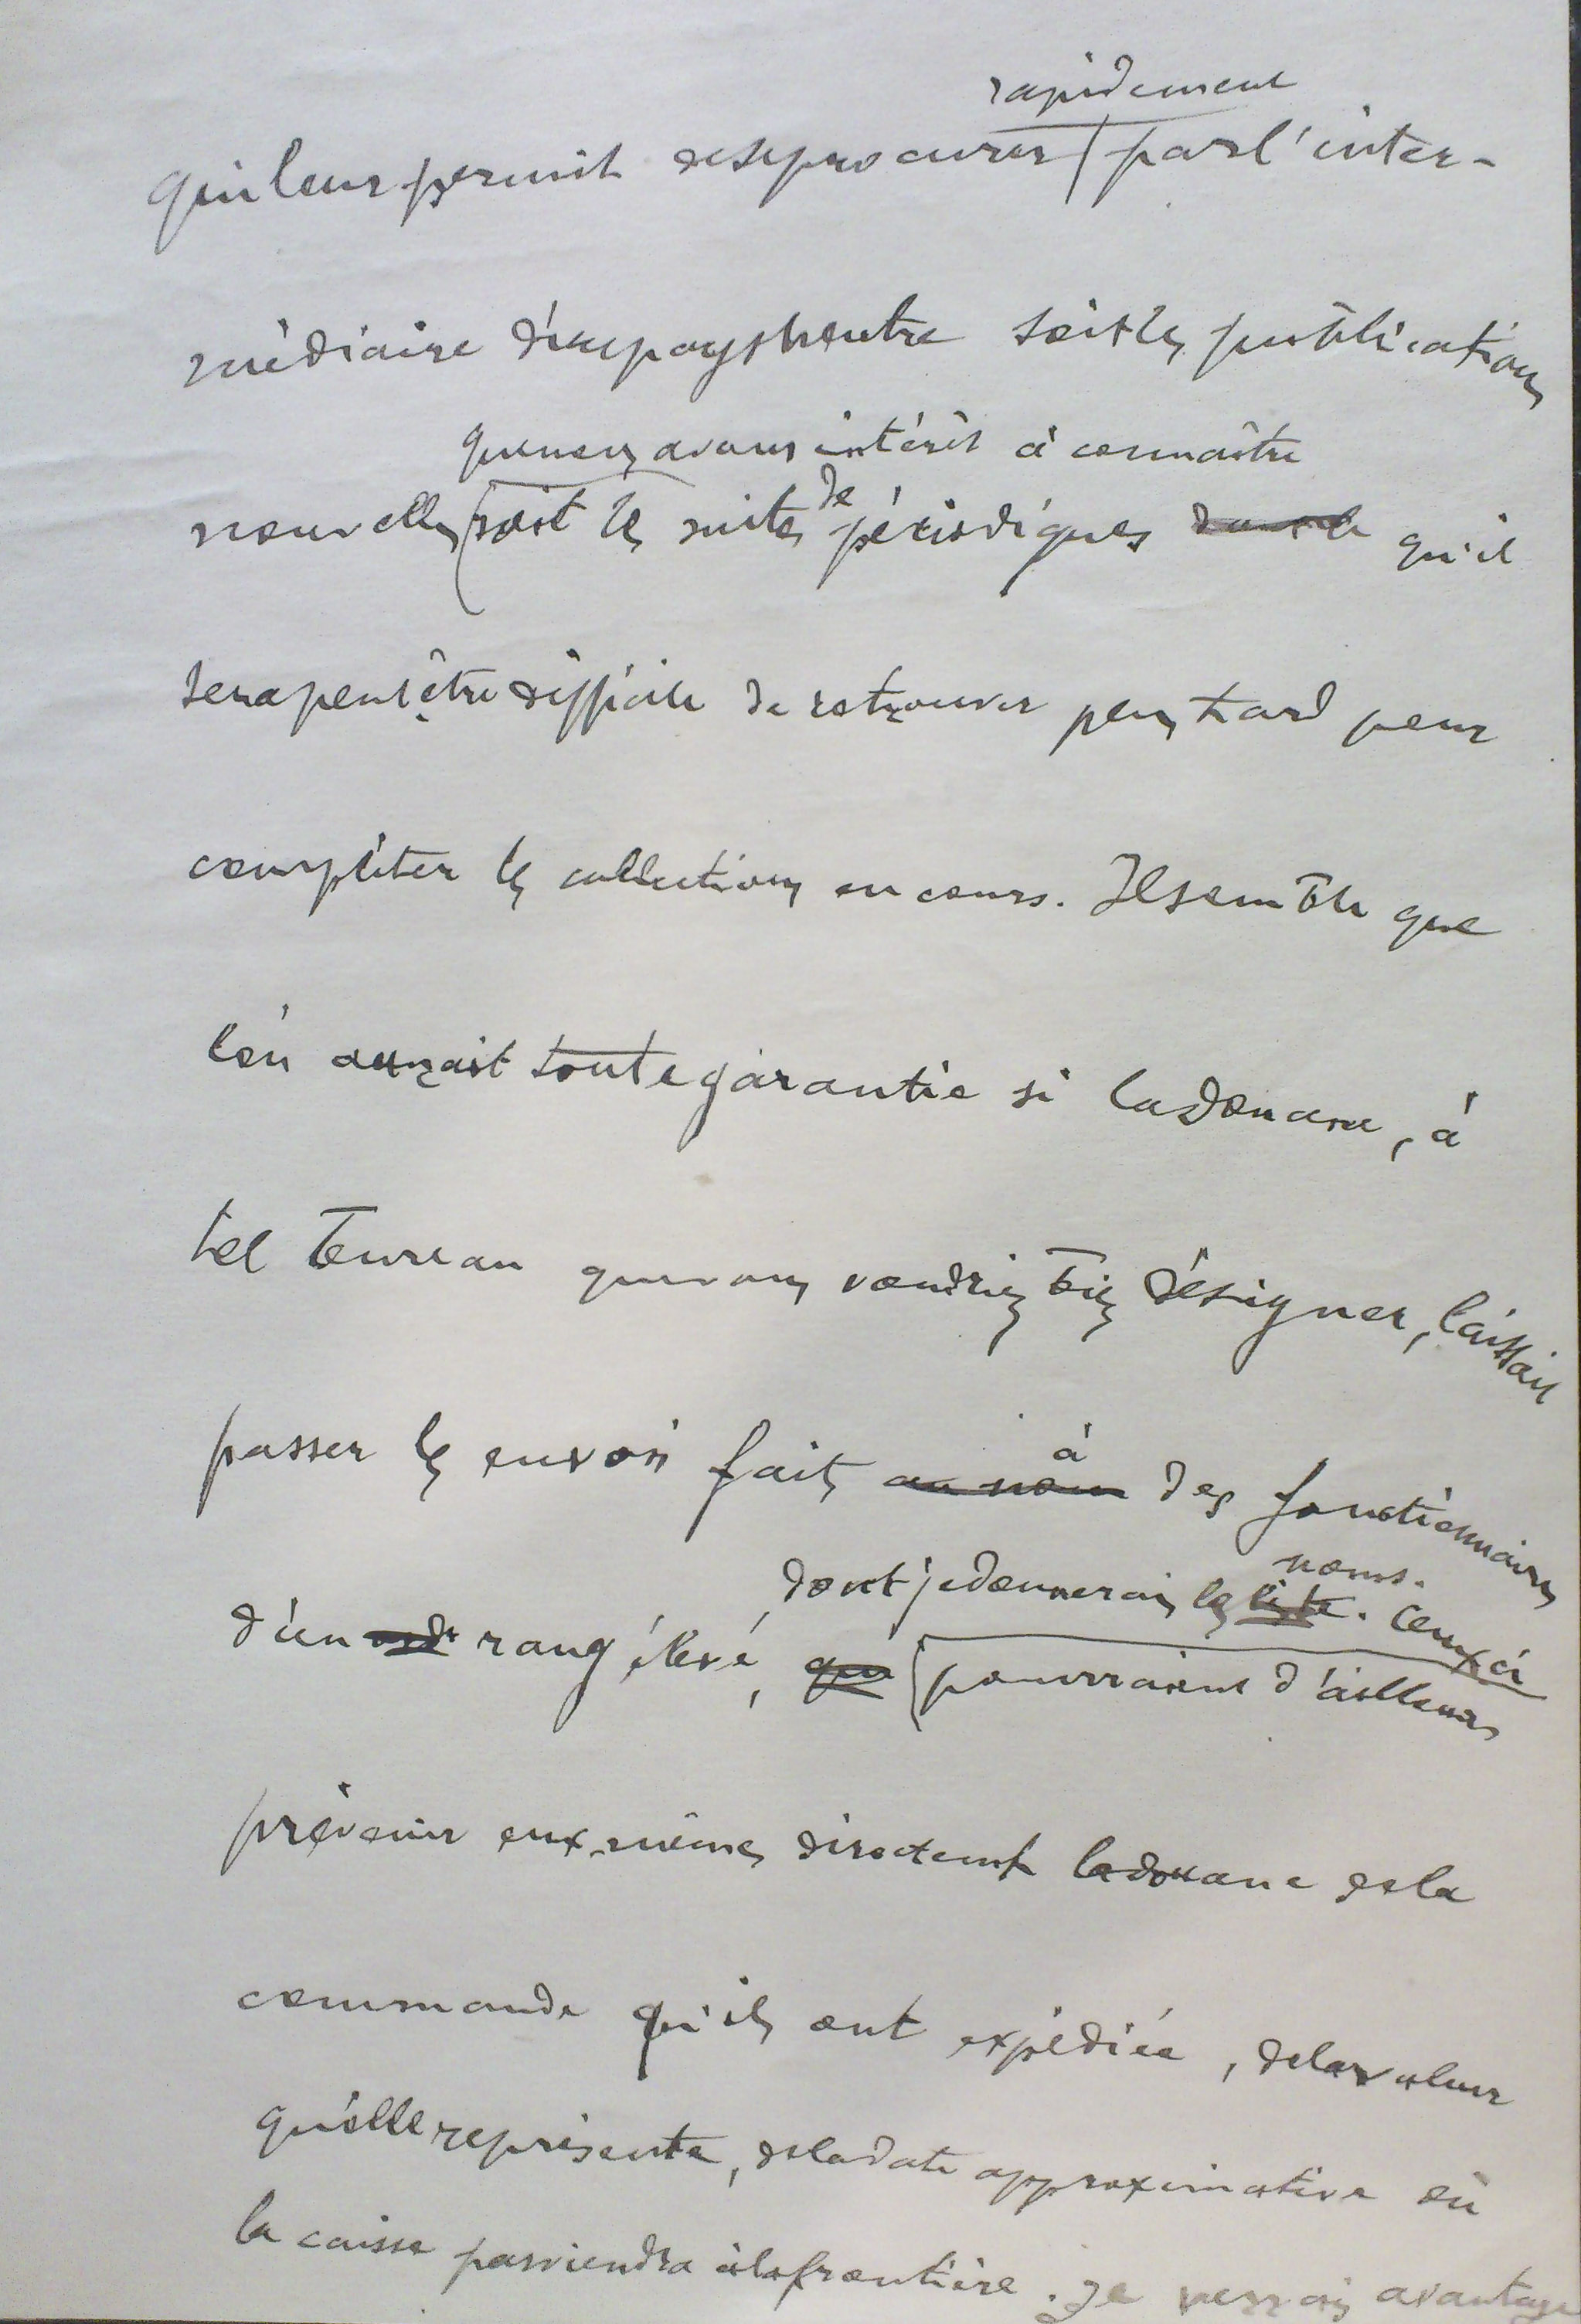 rapidement
qui leur permit de se procurer par l'inter-
médiaire d'un pays neutre soit les publications
que nous avons intérêt à connaître
nouvelles soit les suites de périodiques qu'il
sera peut être difficile de retrouver plus tard pour
compléter les collections en cours. Il semble que
l'on aurait toute garantie si la douane, à
tel bureau que vous voudriez bien désigner, laissait
passer les envois faits au nom à des fonctionnaires
dont je donnerais les liste noms. Ceux ci
d'un rang élevé, qui pourraient d'ailleurs
prévenir eux-mêmes directemt la douane de la
commande qu'ils ont expédiée, de la valeur
qu'elle représente, de la date approximative où
la caisse parviendra à la frontière. Je verrais avantage